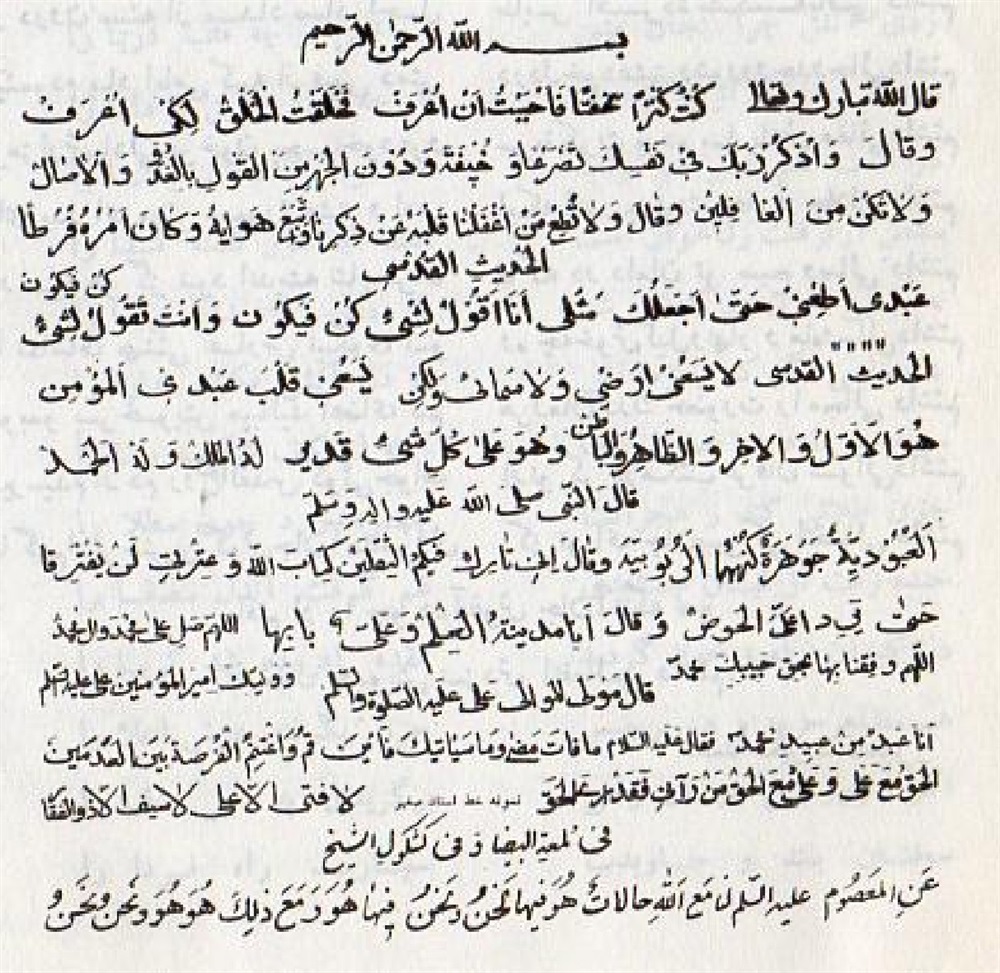 بسم الله الرّحمن الرّحیم
قال الله تبارک وتعالی کنتُ کنزاً مخفیّا فاحببتُ اَن اُعرَف فخلقتُ الخلق لِکَی اُعرَف
وقال وَاذکُر رَبّک فی نفسِک تضرّعاً وَ خیفَة وَدُونَ الجهرِ مِنَ القول بالغدُوّ وَالآصال
وَلاتکُن مِنَ الغافلین وقال وَلاتُطِع مَن اَغفَلنا قلبَهُ عَن ذِکرنا وَاتّبَعَ هَوایهُ وَکان اَمرُهُ فُرُطاً
الحدیث القدسی
عَبدی اَطِعنی حتّیٰ اجعَلُک مَثَلی اَنا اَقُولُ لِشَیءٍ کُن فَیکُون وَاَنت تَقُولُ لِشَیءٍ کُن فیکون
الحدیث القدسی لا یسَعنی ارضی وَلا سَمائی وَلکِن یَسَعنی قلبُ عَبدی المؤمن
هُوَالاَوّلُ وَالاخِر وَالظّاهِرُ وَالباطن وهُوَ عَلیٰ کُلّ شیءٍ قدیر لهُ المُلک وَلهُ الحَمدُ
قالَ النّبی صلی الله علیه واله وسلّم
اَلعبُودیّةُ جَوهَرَةٌ کُنهُهَا الرّبُوبیّه وقالَ اِنّی تارِک فیکُم الثّقلین کِتابَ الله وَ عِترتی لَن یَفتَرِقا
حَتّیٰ یَرِدا علَیّ الحَوض وَ قالَ اَنا مدینةُ العِلم وَعَلیٌ بابها اللهم صل علی محمد وال محمد
اللهم وفقنا بهما بحق حبیبک محمّد وولیک امیرالمؤمنین علی علیه السّلم
قال مَولی الموالی علی علیه الصّلوة والسّلم
اَنا عَبدٌ مِن عَبیدِ محمّد فقال علیه السّلام ما فاتَ مَضیٰ وما سَیاتیک فاَین قُم وَاغتَنِم الفُرصَةَ بَینَ العَدَمَین
الحَقُ مَعَ عَلی وَ عَلیٌ مَعَ الحَق مَن رَآنی فَقَد رَءَالحَق لا فتی الا علی لا سیف الا ذوالفقا
فی لمعة البیضا وَ فی کشکول الشّیخ
عَنِ المعصُوم علیه السّلم لنا مَعَ اللهِ حالاتٌ هُوَ فیها نَحنُ وَنَحنُ فیها هُوَ وَ مَعَ ذلِکَ هُوَ هُوَ وَنَحنُ نَحنُ